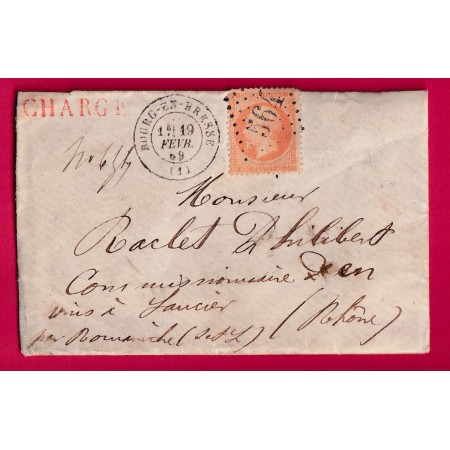 CHARGÉ
BOURG-EN-BRESSE
19
FEVR.
69
(1)
564
Monsieur
Raclet Philibert
Commissionnaire en
vins à Lancié
(Rhône)
par Romanèche (S et L)